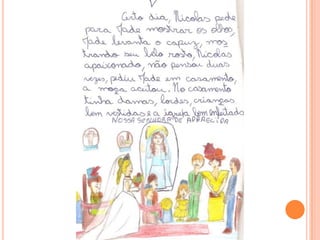 Certo dia, Nicolas pede
para Jade mostrar os olhos,
Jade levanta o capuz, mos
trando seu belo rosto, Nicolas
apaixonado, não pensou duas
vezes, pediu Jade em casamento,
a moça aceitou. No casamento
tinha damas, lordes, crianças
bem vestidas e a igreja bem enfeitada
NOSSA SENHORA DE APARECIDA